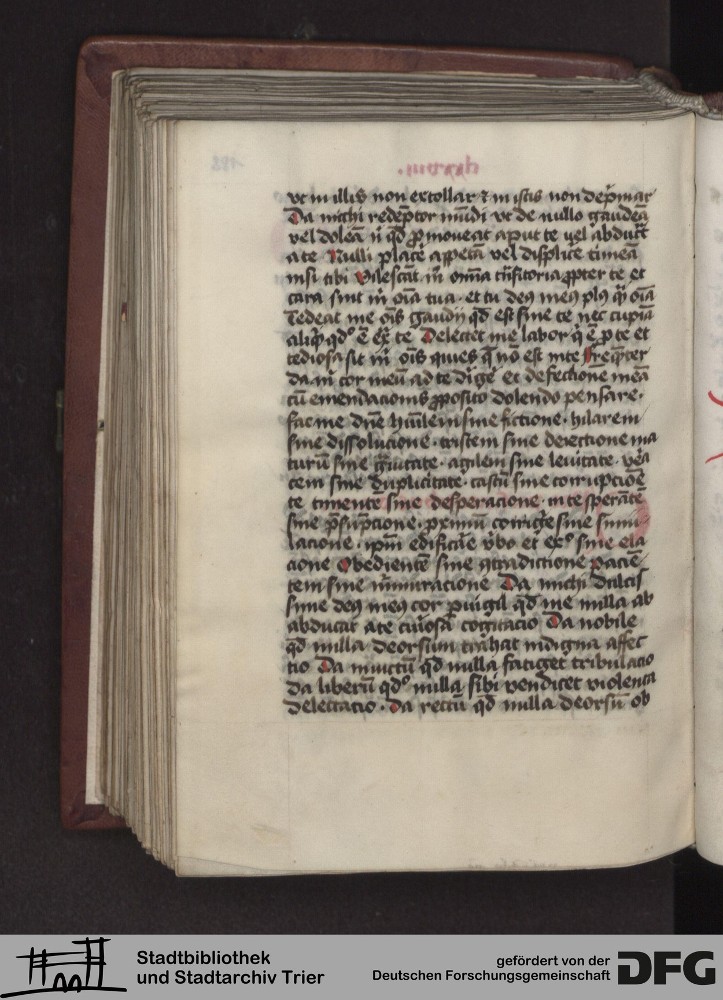 vt in illis non extollar ⁊ in istis non dep̄mar
Da michi redēptor mūdi vt de nullo gaudeā
vel doleā n̄ qd̄ ꝓmoueat aput te vel abducat
a te Nulli placē appetā vel displicē timeā
nisi tibi Vilescāt m̄ om̄a trāsitoria ꝓpter te et
cara sint m̄ oīa tua · et tu deꝰ meꝰ plꝰ qͣ̄ oīa
Tedeat me oīs gaudij qd̄ est sine te nec cupiā
aliqͥd qd̓ ē ex̄ te Delectet me labor qͥ ē ꝓ te et
tediosa sit m̄ oīs quies q̄ nō est in te Freq̄nter
da m̄ cor meū ad te dīgē et defectionē meā
cū emendacionis ꝓposito dolendo pensare ·
fac me dn̄e hūilem sine fictione · hilarem
sine dissolucione · tristem sine deiectione ma
turū sine gͣuitate · agilem sine leuitate · vera
cem sine duplicitate · castū sine corrupcōē
te timentē sine desperacione · in te sperātē
sine p̄sūpcione · pxīmū corrigē sine simu-
lacione · ip̄m edificāe v̓bo et exꝰ sine ela
cione Obedientē sine ꝯtradictione Paciē-
tem sine murmuracione Da michi dulcis
sime deꝰ meꝰ cor ꝑuigil qd̄ me nulla ab
abducat a te cūiosa cogitacio Da nobile
qd̄ nulla deorsum trahat indigna affec
tio Da inuictū qd̄ nulla fatiget tribulacio
da liberū qd̓ nulla sibi vendicet violenta
delectacio · Da rectū qd̄ nulla deorsū ob
Stadtbibliothek
und Stadtarchiv Trier
gefördert von der
Deutschen Forschungsgemeinschaft
DFG